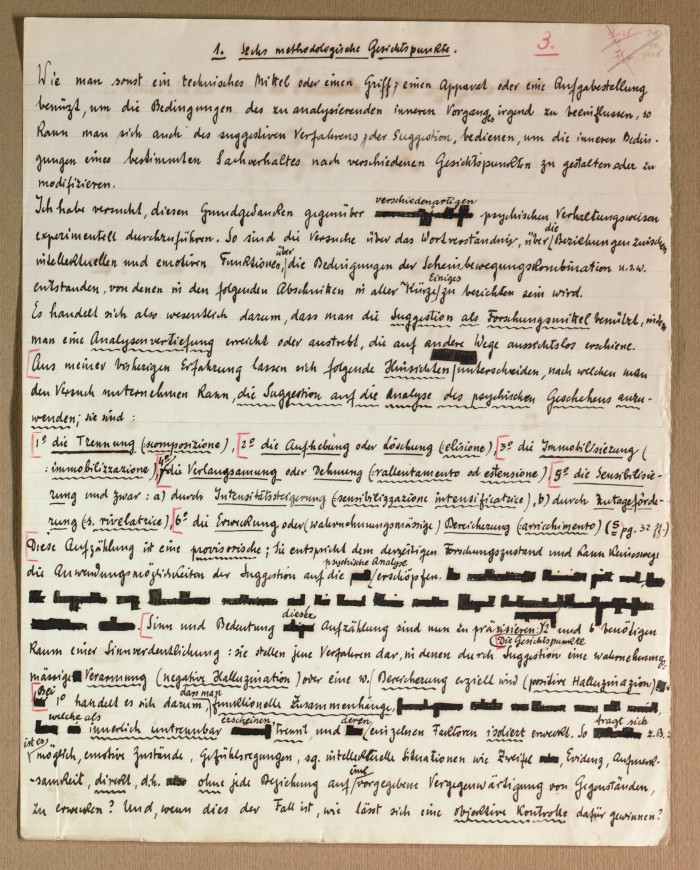 1. Sechs methodologische Gesichtspunkte.
3.
Wie man sonst ein technisches Mittel oder einen Griff, einen Apparat oder eine Aufgabestellung
benützt, um die Bedingungen des zu analysierenden inneren Vorgangs irgend zu beeinflussen, so
kann man sich auch des suggestiven Verfahrens, der Suggestion, bedienen, um die inneren Bedin-
gungen eines bestimmten Sachverhaltes nach verschiedenen Gesichtspunkten zu gestalten oder zu
modifizieren.
Ich habe versucht, diesen Grundgedanken gegenüber verschiedenartigen psychischen Verhaltungsweisen
experimentell durchzuführen. So sind die Versuche über das Wortverständnis, über die Beziehungen zwischen
intellektuellen und emotiven Funktionen, über die Bedingungen der Scheinbewegungskombination u.s.w.
entstanden, von denen in den folgenden Abschnitten in aller Kürze Einiges zu berichten sein wird.
Es handelt sich also wesentlich darum, dass man die Suggestion als Forschungsmittel benützt, indem
man eine Analysenvertiefung erreicht oder anstrebt, die auf andere Wege aussichtslos erschiene.
Aus meiner bisherigen Erfahrung lassen sich folgende Hinsichten unterscheiden, nach welchen man
den Versuch unternehmen kann, die Suggestion auf die Analyse des psychischen Geschehens anzu-
wenden; sie sind :
1° die Trennung (scomposizione), 2° die Aufhebung oder Löschung (elisione), 3° die Immobilisierung (
immobilizzazione), 4° die Verlangsamung oder Dehnung (rallentamento od estensione), 5° die Sensibilisie-
rung und zwar : a) durch Intensitätssteigerung (sensibilizzazione intensificatrice), b) durch Zutageförde-
rung (s. rivelatrice), 6° die Erweckung oder (wahrnehmungsmässige) Bereicherung (arricchimento) (S pg. 32 ff.)
Diese Aufzählung ist eine provisorische; Sie entspricht dem derzeitigen Forschungszustand und kann keineswegs
die Anwendungsmöglichkeiten der Suggestion auf die psychische Analyse erschöpfen.
Sinn und Bedeutung dieser Aufzählung sind nun zu präzisieren: 2 und 6 benötigen
kaum einer Sinnverdeutlichung : sie stellen jene Verfahren dar, in denen durch Suggestion eine wahrnehmungs-
Die Gesichtspunkte
mässige Verarmung (negative Halluzination) oder eine w. Bereicherung erzielt wird (positive Halluzination)
Bei 1° handelt es sich darum, dass man funktionelle Zusammenhänge,
welche als innerlich untrennbar erscheinen, trennt, und deren einzelnen Faktoren isoliert erweckt. So fragt sich z.B. :
ist es möglich, emotive Zustände, Gefühlsregungen, sg. intellektuelle Situationen wie Zweifel, Evidenz, Aufmerk-
samkeit, direkt, d.h. ohne jede Beziehung auf und vorgegebene Vergegenwärtigung von Gegenständen,
zu erwecken? Und, wenn dies der Fall ist, wie lässt sich eine objektive Kontrolle dafür gewinnen?